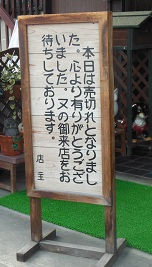 本日は売切れとなりまし
た。心より有りがとうござ
いました。又の御来店をお
待ちしております。
店主